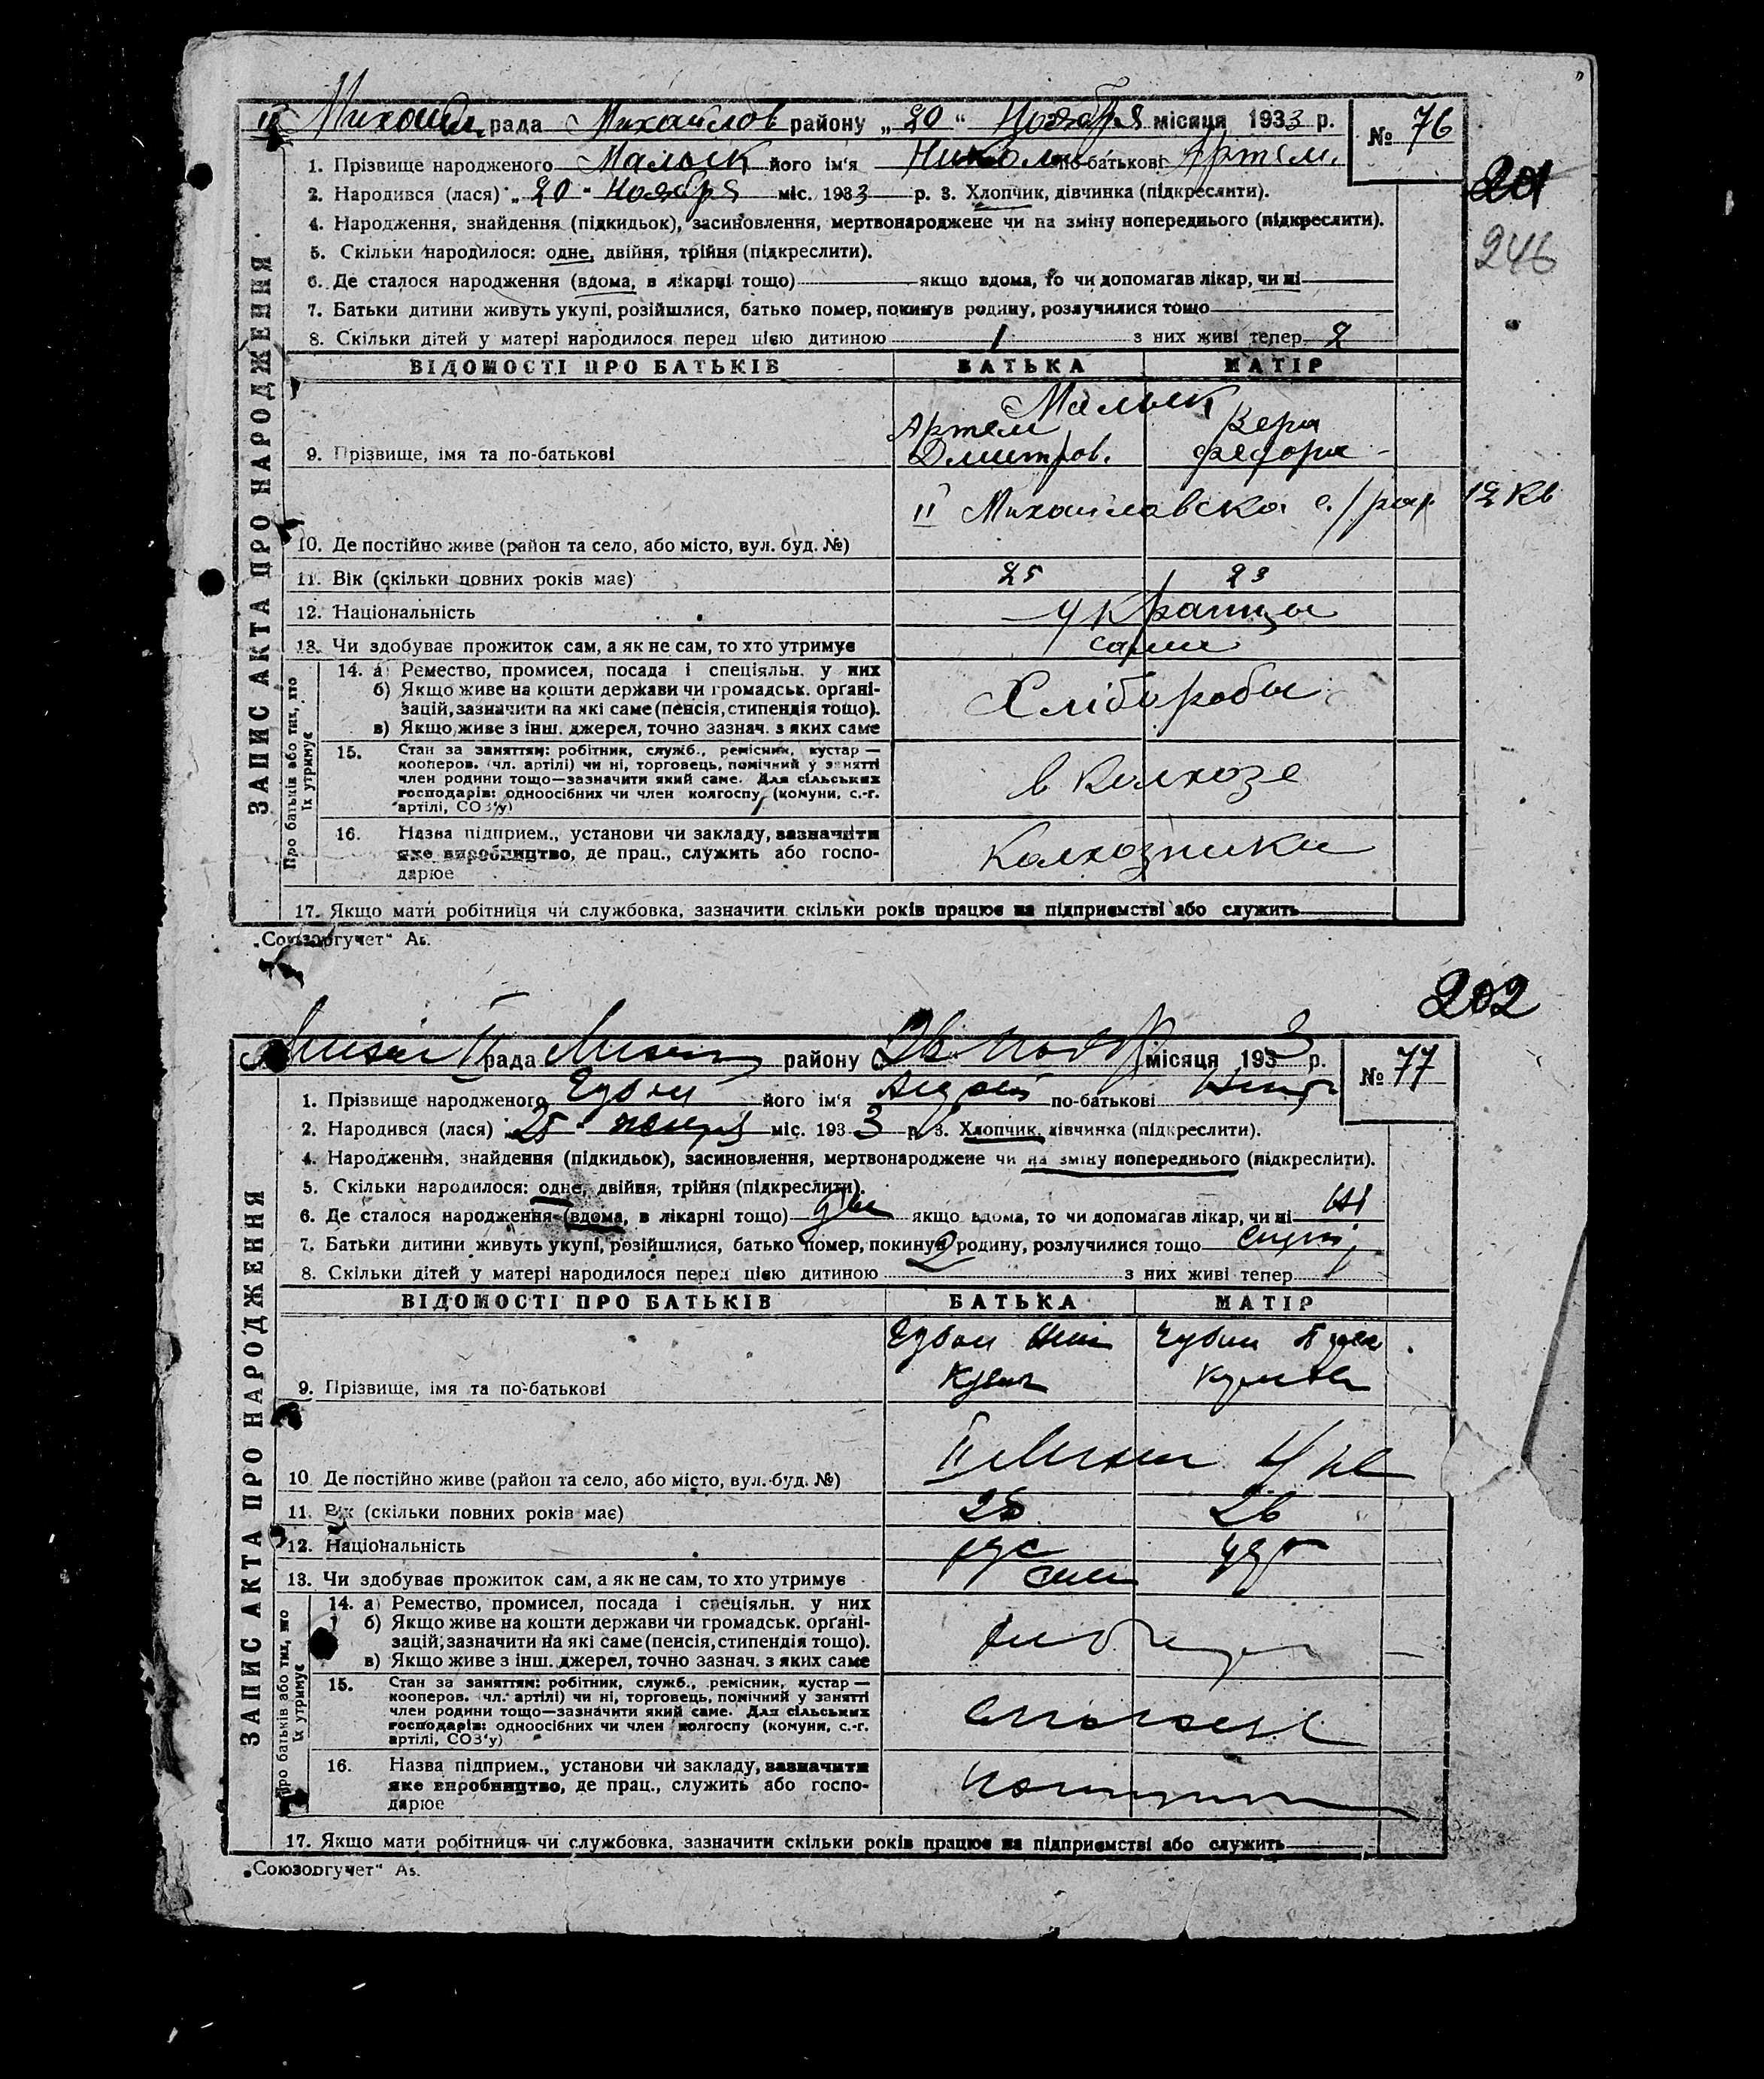 II Михайл. рада Михайлов району „20“ Ноября місяця 1933 р.
№ 76
1. Прізвище народженого Малык його ім'я Никола по-батькові Артем.
201
2. Народився (лася) „20“ Ноября міс. 1933 р. 3. Хлопчик, дівчинка (підкреслити).
4. Народження, знайдення (підкидьок), засиновлення, мертвонароджене чи на зміну попереднього (підкреслити).
246
5. Скільки народилося: одне, двійня, трійня (підкреслити).
6. Де сталося народження (вдома, в лікарні тощо) якщо вдома, то чи допомагав лікар, чи ні
7. Батьки дитини живуть укупі, розійшлися, батько помер, покинув родину, розлучилися тощо
8. Скільки дітей у матері народилося перед цією дитиною 1 з них живі тепер 2
ЗАПИС АКТА ПРО НАРОДЖЕННЯ
ВІДОМОСТІ ПРО БАТЬКІВ БАТЬКА МАТІР
Малык
Артем Вера
9. Прізвище, імя та по-батькові Дмитров. Федоров
II Михайлавска с./рад. 12 кв
10. Де постійно живе (район та село, або місто, вул. буд. №)
11. Вік (скільки повних років має) 25 23
12. Національність украинцы
13. Чи здобуває прожиток сам, а як не сам, то хто утримує сами
Про батьків або тих, хто їх утримує
14. а) Ремество, промисел, посада і спеціяльн. у них
б) Якщо живе на кошти держави чи громадськ. органі-
зацій, зазначити на які саме (пенсія, стипендія тощо). Хліборобы
в) Якщо живе з інш. джерел, точно зазнач. з яких саме
15. Стан за заняттям: робітник, служб., ремісник, кустар —
кооперов. (чл. артілі) чи ні, торговець, помічний у занятті
член родини тощо—зазначити який саме. Для сільських
господарів: одноосібних чи член колгоспу (комуни, с.-г.
артілі, СОЗ'у) в колхозе
16. Назва підприєм., установи чи закладу, зазначити
яке виробництво, де прац., служить або госпо-
дарює колхозники
17. Якщо мати робітниця чи службовка, зазначити скільки років працює на підприємстві або служить
„Союзоргучет“ Аз.
202
рада району 26 місяця 1933 р.
№ 77
1. Прізвище народженого його ім'я Андрей по-батькові
2. Народився (лася) „25“ ноября міс. 1933 р. 3. Хлопчик, дівчинка (підкреслити).
4. Народження, знайдення (підкидьок), засиновлення, мертвонароджене чи на зміну попереднього (підкреслити).
5. Скільки народилося: одне, двійня, трійня (підкреслити).
6. Де сталося народження (вдома, в лікарні тощо) якщо вдома, то чи допомагав лікар, чи ні ні
7. Батьки дитини живуть укупі, розійшлися, батько помер, покинув родину, розлучилися тощо
8. Скільки дітей у матері народилося перед цією дитиною 2 з них живі тепер
ЗАПИС АКТА ПРО НАРОДЖЕННЯ
ВІДОМОСТІ ПРО БАТЬКІВ БАТЬКА МАТІР
9. Прізвище, імя та по-батькові
II
10. Де постійно живе (район та село, або місто, вул. буд. №)
11. Вік (скільки повних років має) 26
12. Національність рус укр
13. Чи здобуває прожиток сам, а як не сам, то хто утримує сами
Про батьків або тих, хто їх утримує
14. а) Ремество, промисел, посада і спеціяльн. у них
б) Якщо живе на кошти держави чи громадськ. органі-
зацій, зазначити на які саме (пенсія, стипендія тощо).
в) Якщо живе з інш. джерел, точно зазнач. з яких саме
15. Стан за заняттям: робітник, служб., ремісник, кустар —
кооперов. (чл. артілі) чи ні, торговець, помічний у занятті
член родини тощо—зазначити який саме. Для сільських
господарів: одноосібних чи член колгоспу (комуни, с.-г.
артілі, СОЗ'у)
16. Назва підприєм., установи чи закладу, зазначити
яке виробництво, де прац., служить або госпо-
дарює
17. Якщо мати робітниця чи службовка, зазначити скільки років працює на підприємстві або служить
„Союзоргучет“ Аз.